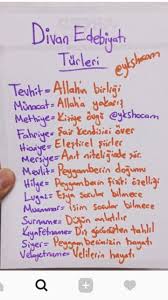 Divan Edebiyatı
Türleri
@ykshocam
Tevhit= Allah'ın birliği
Münacat= Allaha yakarış
Methiye= Kişiye övgü @ykshocam
Fahriye= Şair kendisini över
Hicviye= Eleştirel şiirler
Mersiye= Ağıt niteliğinde şiir
Mevlit= Peygamberin doğumu
Hilye= Peygamberin fiziki özelliği
Lugaz= Eşya sorular bilmece
Muamma= isim sorular bilmece
Surname= Düğün anlatılır
Kıyafetname= Dış görünüşten tahlil
Siyer= Peygamberimizin hayatı
Velayetname= Velilerin hayatı